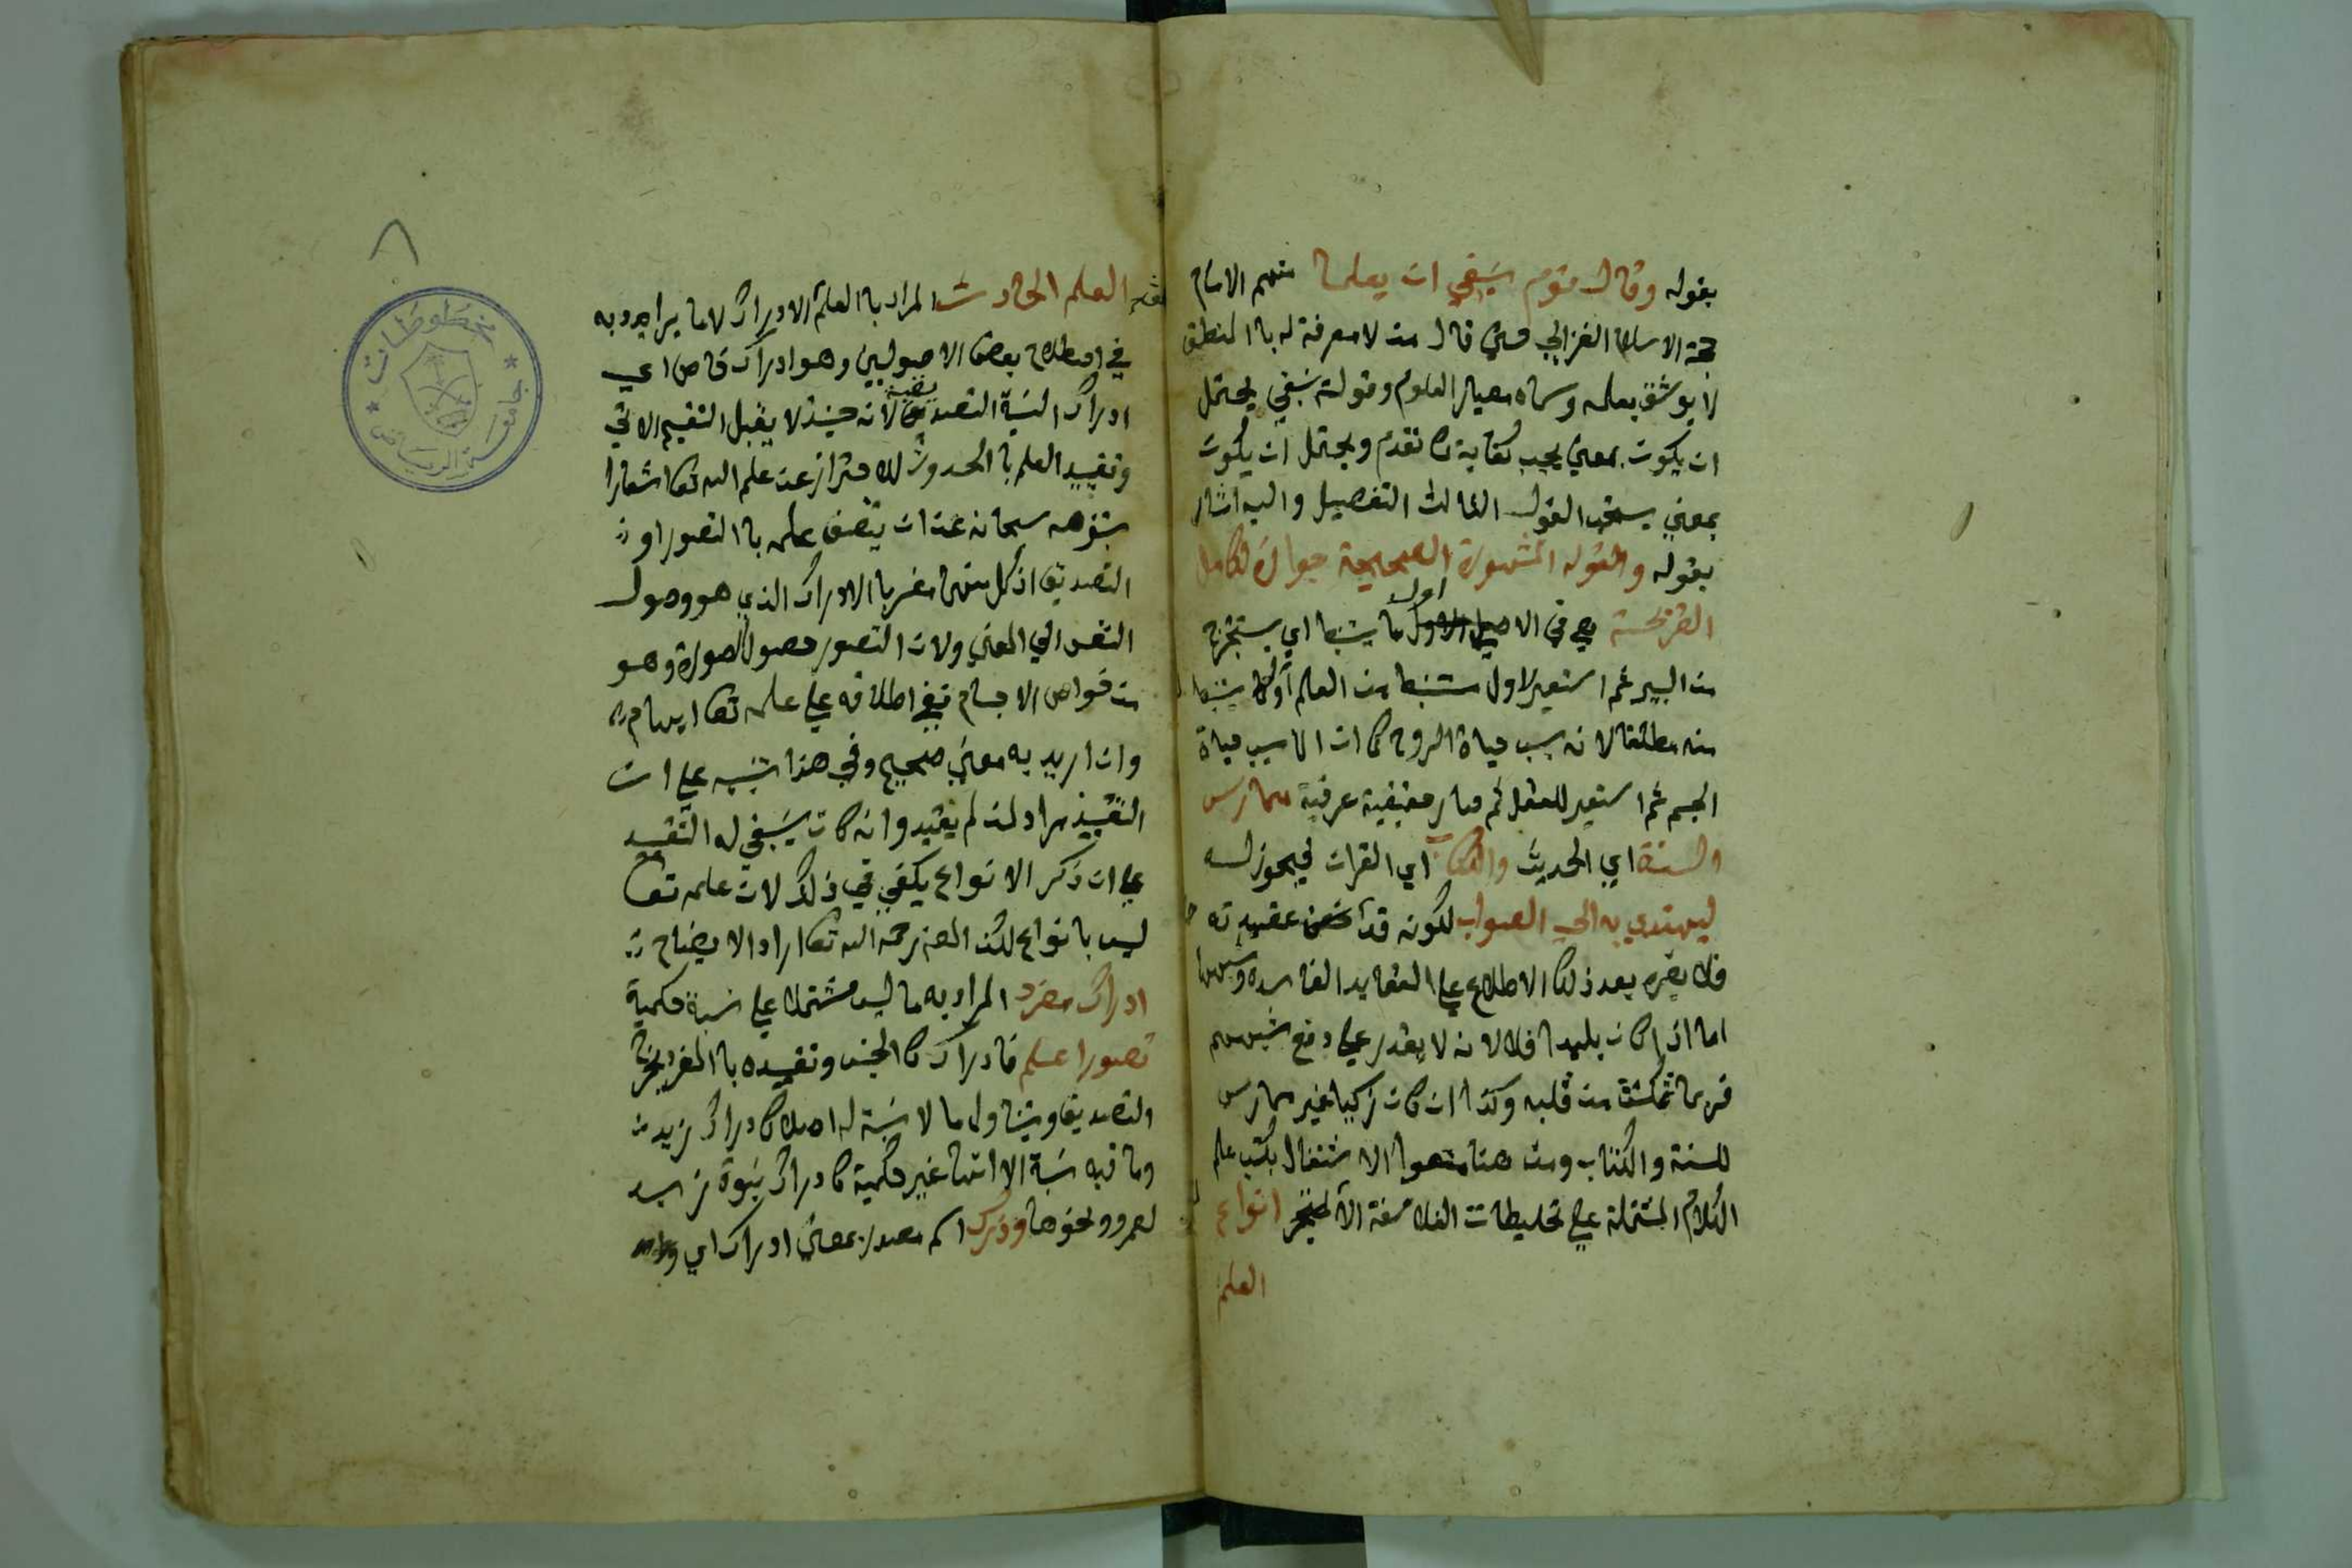 بقوله وقال قوم ينبغي ان يعلما منهم الامام
حجة الاسلام الغزالي حتى قال من لا معرفة له با المنطق
لا يوثق بعلمه وسماه معيار العلوم وقوله ينبغي يحتمل
ان يكون بمعني يجب كفاية كما تقدم ويحتمل ان يكون
بمعني يستحب القول الثالث التفصيل واليه اشار
بقوله والقوله المشهورة الصحيحة جوازه لكامل
القريحة هي في الاصل اول ما يستنبط اي يستخرج
من البير ثم استعير لاول مستنبط من العلم او لما يستنبط
منه مطلقا لانه سبب حياة الروح كما ان الما سبب حياة
الجسم ثم استعير للعقل ثم صار حقيقية عرفية ممارس
السنة اي الحديث والكتاب اي القران فيجوز له
ليهتدي به الي الصواب لكونه قد حصن عقيدته
فلا يضره بعد ذلك الاطلاع علي العقايد الفاسده وشبهها
اما اذا كان بليدا فلا لانه لا يقدر علي دفع شبههم
فربما تمكنت من قلبه وكذا ان كان زكيا غير ممارس
للسنة والكتاب ومن هنا منعوا الاشتغال بكتب علم
الكلام المشتملة علي تخليطات الفلاسفة الا لمتبحر انواع
العلم
العلم الحادث المراد با العلم الادراك لا ما يراد به
في اصطلاح بعض الاصوليين وهو ادراك خاص اي
ادراك النسبة التصديقية لانه حينئذ لا يقبل التقسيم الاتي
وتقييد العلم با الحدوث للاحتراز عن علم الله تعا اشعارا
بتنزهه سبحانه عن ان يتصف علمه با التصور او
التصديق اذ كل منهما مفسر با الادراك الذي هو وصول
النفس الي المعني ولان التصور حصول الصورة وهو
من خواص الاجسام ففي اطلاقه علي علمه تعا ايهام
وان اريد به معني صحيح وفي هذا تنبيه علي ان
التقييد مراد لمن لم يقيد وانه كان ينبغي له التقييد
علي ان ذكر الانواع يكفي في ذلك لان علمه تعا
ليس بانواع لكن المص رحمه الله تعا اراد الايضاح
ادراك مفرد المراد به ما ليس مشتملا علي نسبة حكمية
تصورا علم فادراك كا الجنس وتقييده با المفرد يخرج
التصديق ويتناول ما لا نسبة له اصلا كادراك زيد
وما فيه نسبة الا انها غير حكمية كادراك بنوة زيد
لعمرو ونحوها ودرك اسم مصدر بمعني ادراك اي
مخطوطات
جامعة الرياض